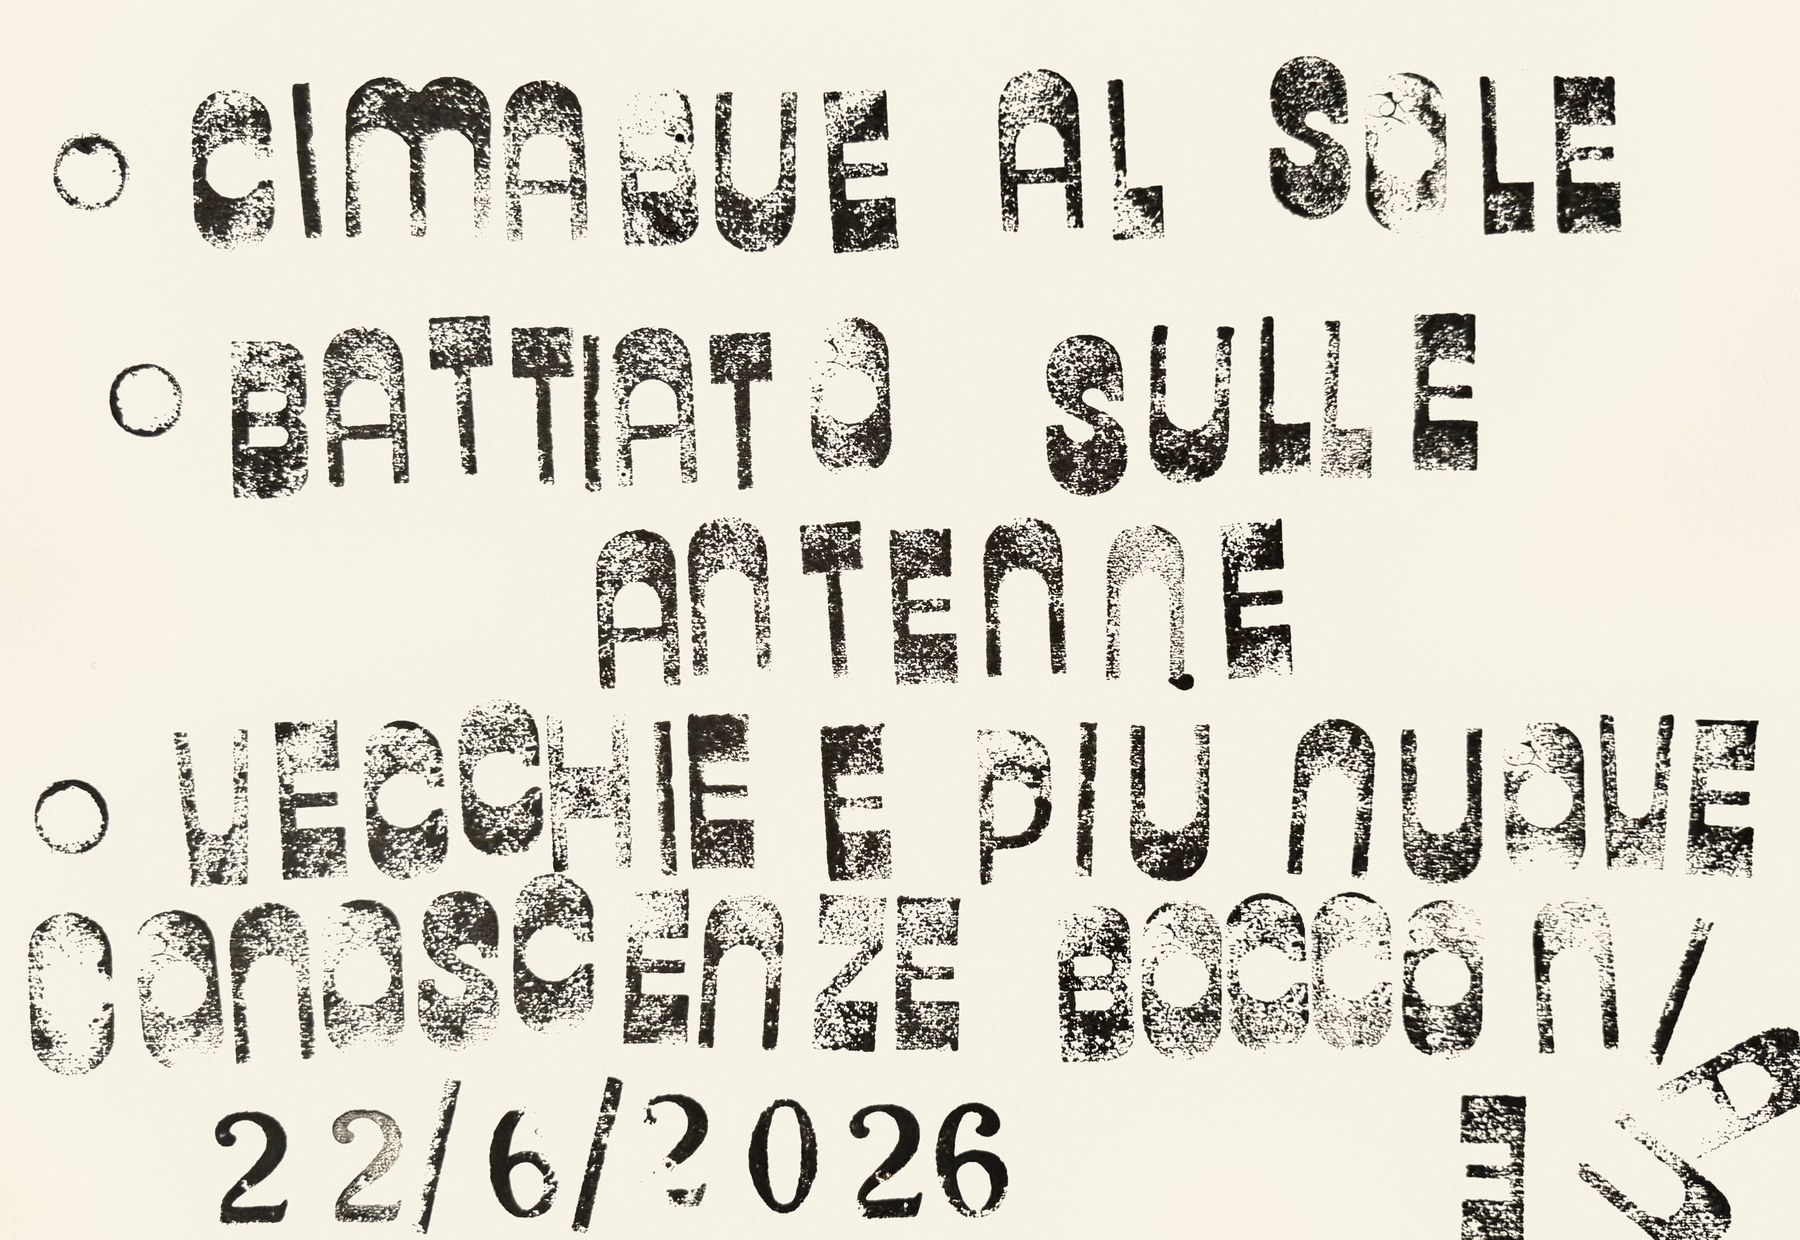 ○ CIMABUE AL SOLE
○ BATTIATO SULLE
ANTENNE
○ VECCHIE E PIU NUOVE
CONOSCENZE BOCCONIANE
22/6/2026